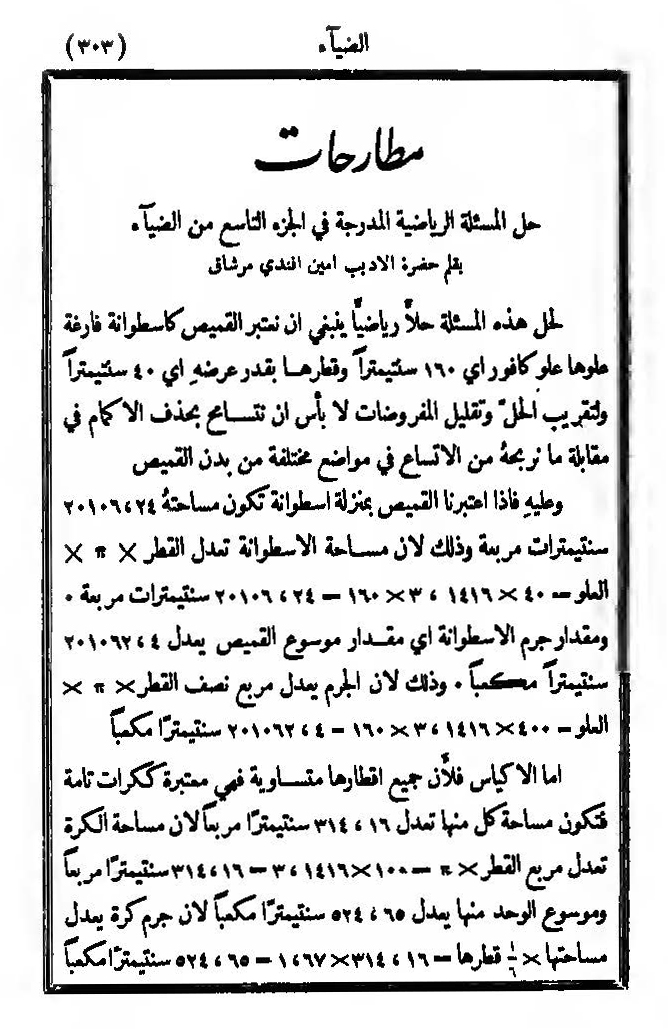 الضيآء (٣٠٣)
مطارحات
حل المسئلة الرياضية المدرجة في الجزء التاسع من الضيآء
بقلم حضرة الاديب امين افندي مرشاق
لحل هذه المسئلة حلاً رياضيًا ينبغي ان نعتبر القميص كاسطوانة فارغة
علوها علو كافور اي ١٦٠ سنتيمتراً وقطرها بقدر عرضهِ اي ٤٠ سنتيمتراً
ولتقريب الحلّ وتقليل المفروضات لا بأس ان نتسامح بحذف الاكمام في
مقابلة ما نربحهُ من الاتساع في مواضع مختلفة من بدن القميص
وعليهِ فاذا اعتبرنا القميص بمنزلة اسطوانة تكون مساحتهُ ٢٠١٠٦،٢٤
سنتيمترات مربعة وذلك لان مساحة الاسطوانة تعدل القطر × π ×
العلو = ٤٠ × ٣،١٤١٦ × ١٦٠ = ٢٠١٠٦،٢٤ سنتيمترات مربعة ٠
ومقدار جرم الاسطوانة اي مقدار موسوع القميص يعدل ٢٠١٠٦٢،٤
سنتيمتراً مكعباً ٠ وذلك لان الجرم يعدل مربع نصف القطر × π ×
العلو = ٤٠٠ × ٣،١٤١٦ × ١٦٠ = ٢٠١٠٦٢،٤ سنتيمترًا مكعباً
اما الاكياس فلأن جميع اقطارها متساوية فهي معتبرة ككرات تامة
فتكون مساحة كل منها تعدل ٣١٤،١٦ سنتيمترًا مربعاً لان مساحة الكرة
تعدل مربع القطر × π = ١٠٠ × ٣،١٤١٦ = ٣١٤،١٦ سنتيمترًا مربعاً
وموسوع الوحد منها يعدل ٥٢٤،٦٥ سنتيمترًا مكعباً لان جرم كرة يعدل
مساحتها × ١/٦ قطرها = ٣١٤،١٦ × ١،٦٧ = ٥٢٤،٦٥ سنتيمترًا مكعباً